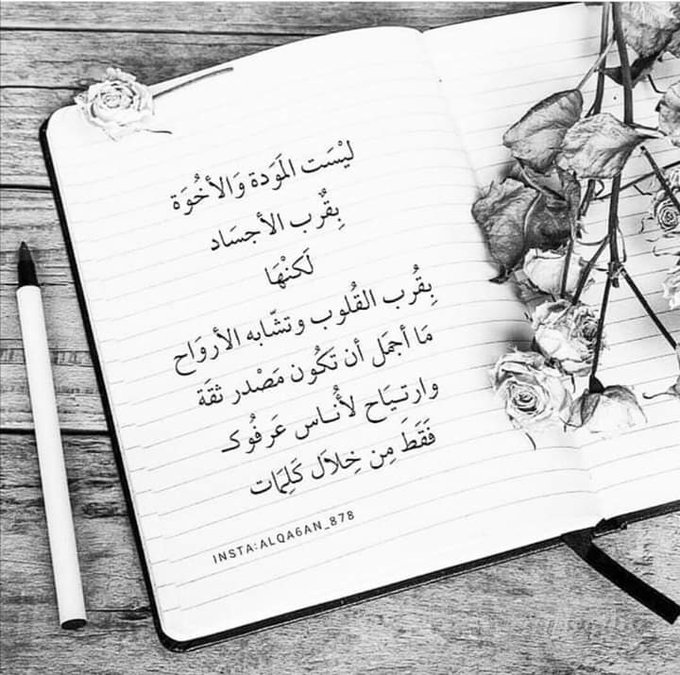 ليْسَت المَوَدة وَالأخُوَة
بِقُرب الأجسَاد
لَكنْهَا
بِقُرب القُلوب وتشّابه الأروَاح
مَا أجمَل أن تَكُون مَصْدر ثقَة
وارتـيَاح لأُنـاس عَرفُوكـ
فَقَطَ مِن خِلاَل كَلِمَات
INSTA:ALQA6AN_878